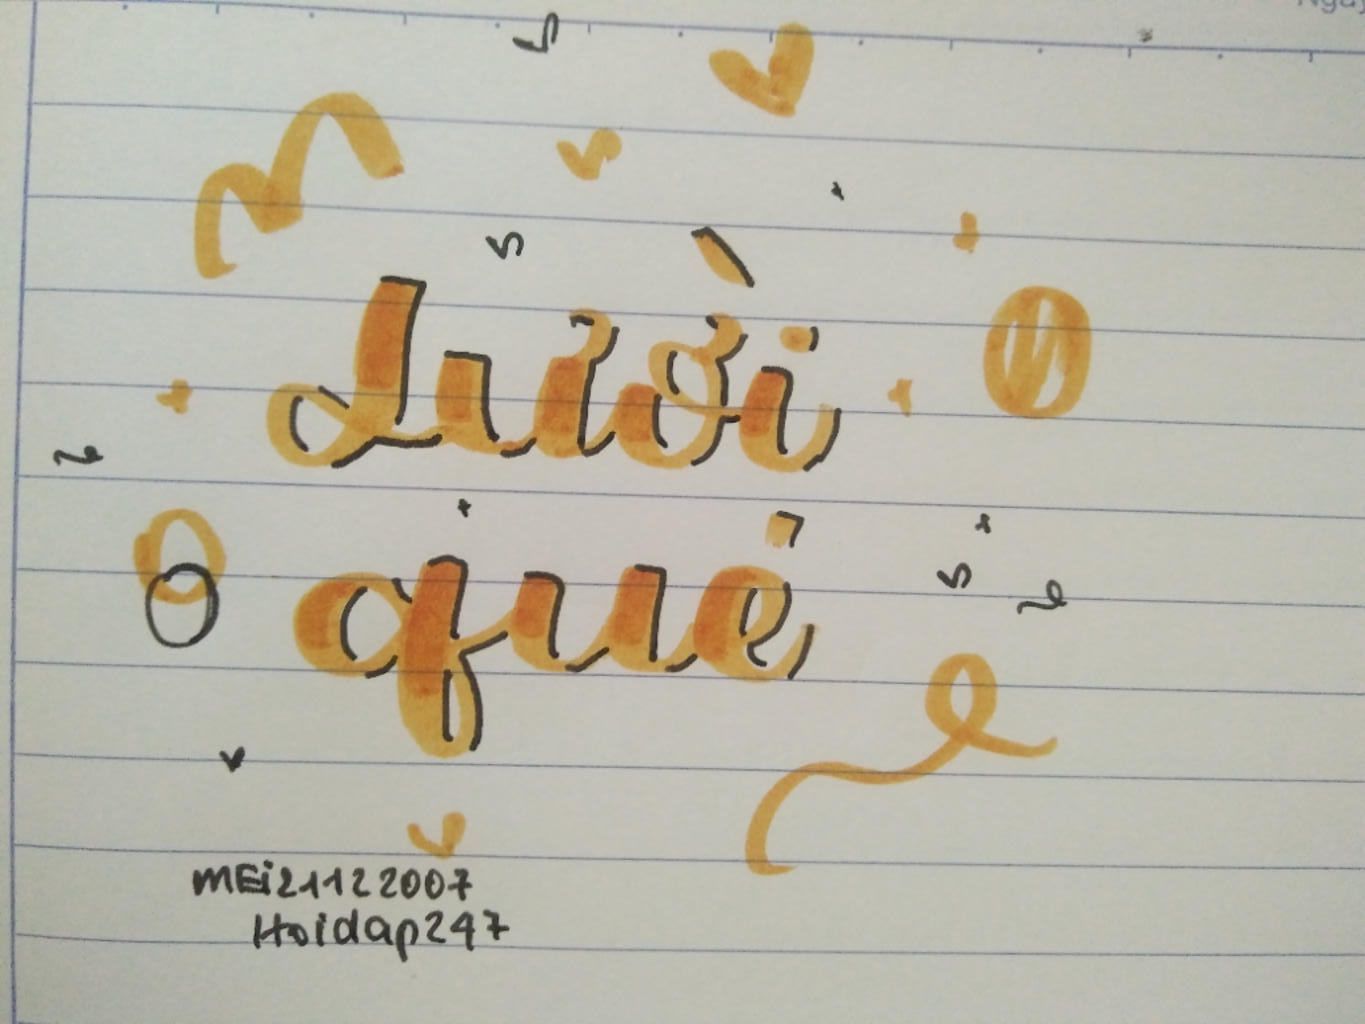 Lười
qué
MEi21122007
Hoidap247